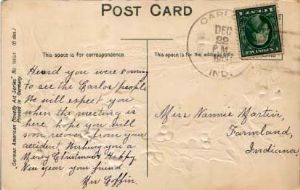 POST CARD
This space is for correspondence.
This space is for address.
Heard you were coming
to see the Carlos people
We will expect you
when the meeting is
here hope you will
soon recover from your
accident Wishing you a
Merry Christmas & Happy
New year your friend
Mrs Goffin
DEC
P.M.
IND.
Miss Nannie Martin,
Farmland,
Indiana